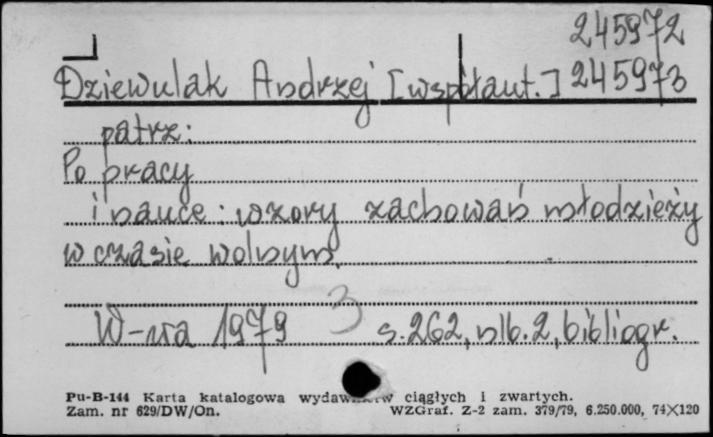 245972
Dziewulak Andrzej [współaut.] 245973
patrz:
Po pracy
i nauce: wzory zachowań młodzieży
w czasie wolnym.
W-wa 1979 3 s. 262, nlb. 2, bibliogr.
Pu-B-144 Karta katalogowa ciągłych i zwartych.
Zam. nr 629/DW/On. WZGraf. Z-2 zam. 379/79, 6.250.000, 74X120